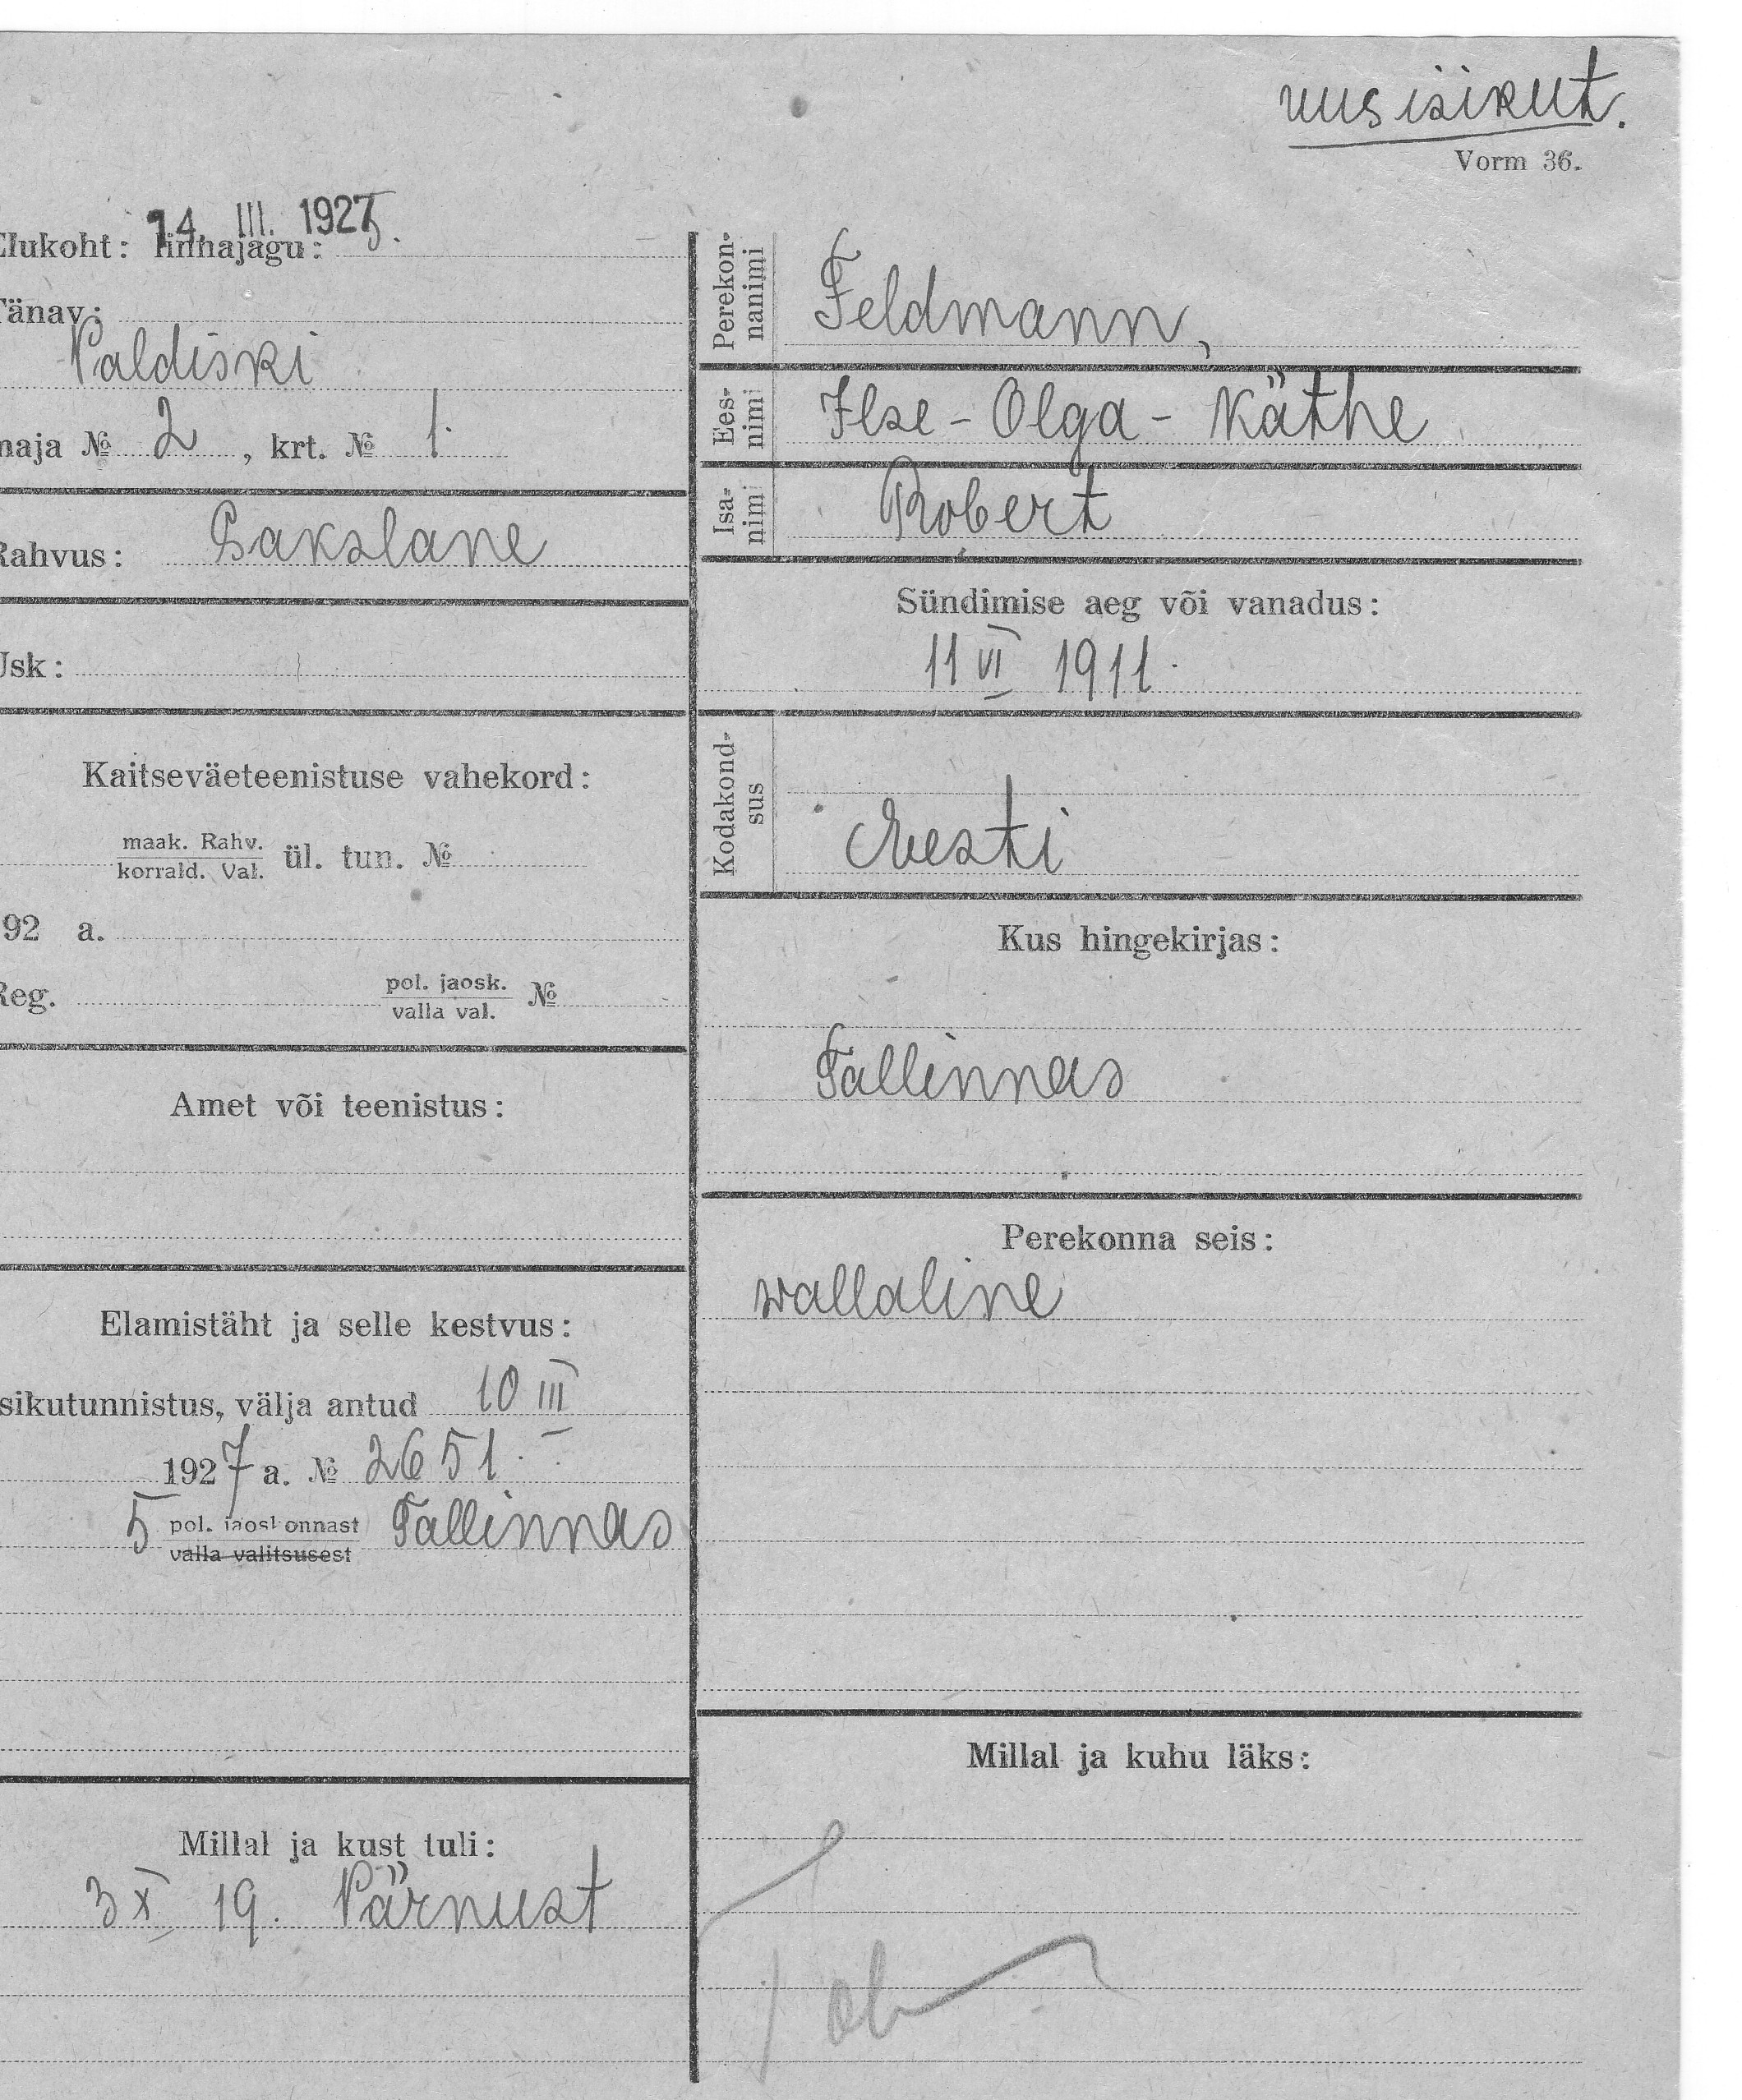 uus isikut.
Vorm 36.
14. III. 1927
Elukoht: linnajagu: 5.
Tänav:
Paldiski
maja № 2, krt. № 1.
Rahvus: Sakslane
Usk:
Kaitseväeteenistuse vahekord:
maak. Rahv.
korrald. Val.
ül. tun. №
192 a.
Reg.
pol. jaosk.
valla val.
№
Amet või teenistus:
Elamistäht ja selle kestvus:
Isikutunnistus, välja antud 10 III
1927 a. № 2651.
5 pol. jaoskonnast Tallinnas
valla valitsusest
Millal ja kust tuli:
3 X 19. Pärnust
Perekon-
nanimi
Feldmann,
Ees-
nimi
Ilse-Olga-Käthe
Isa-
nimi
Robert
Sündimise aeg või vanadus:
11 VI 1911.
Kodakond-
sus
Eesti
Kus hingekirjas:
Tallinnas
Perekonna seis:
wallaline
Millal ja kuhu läks: